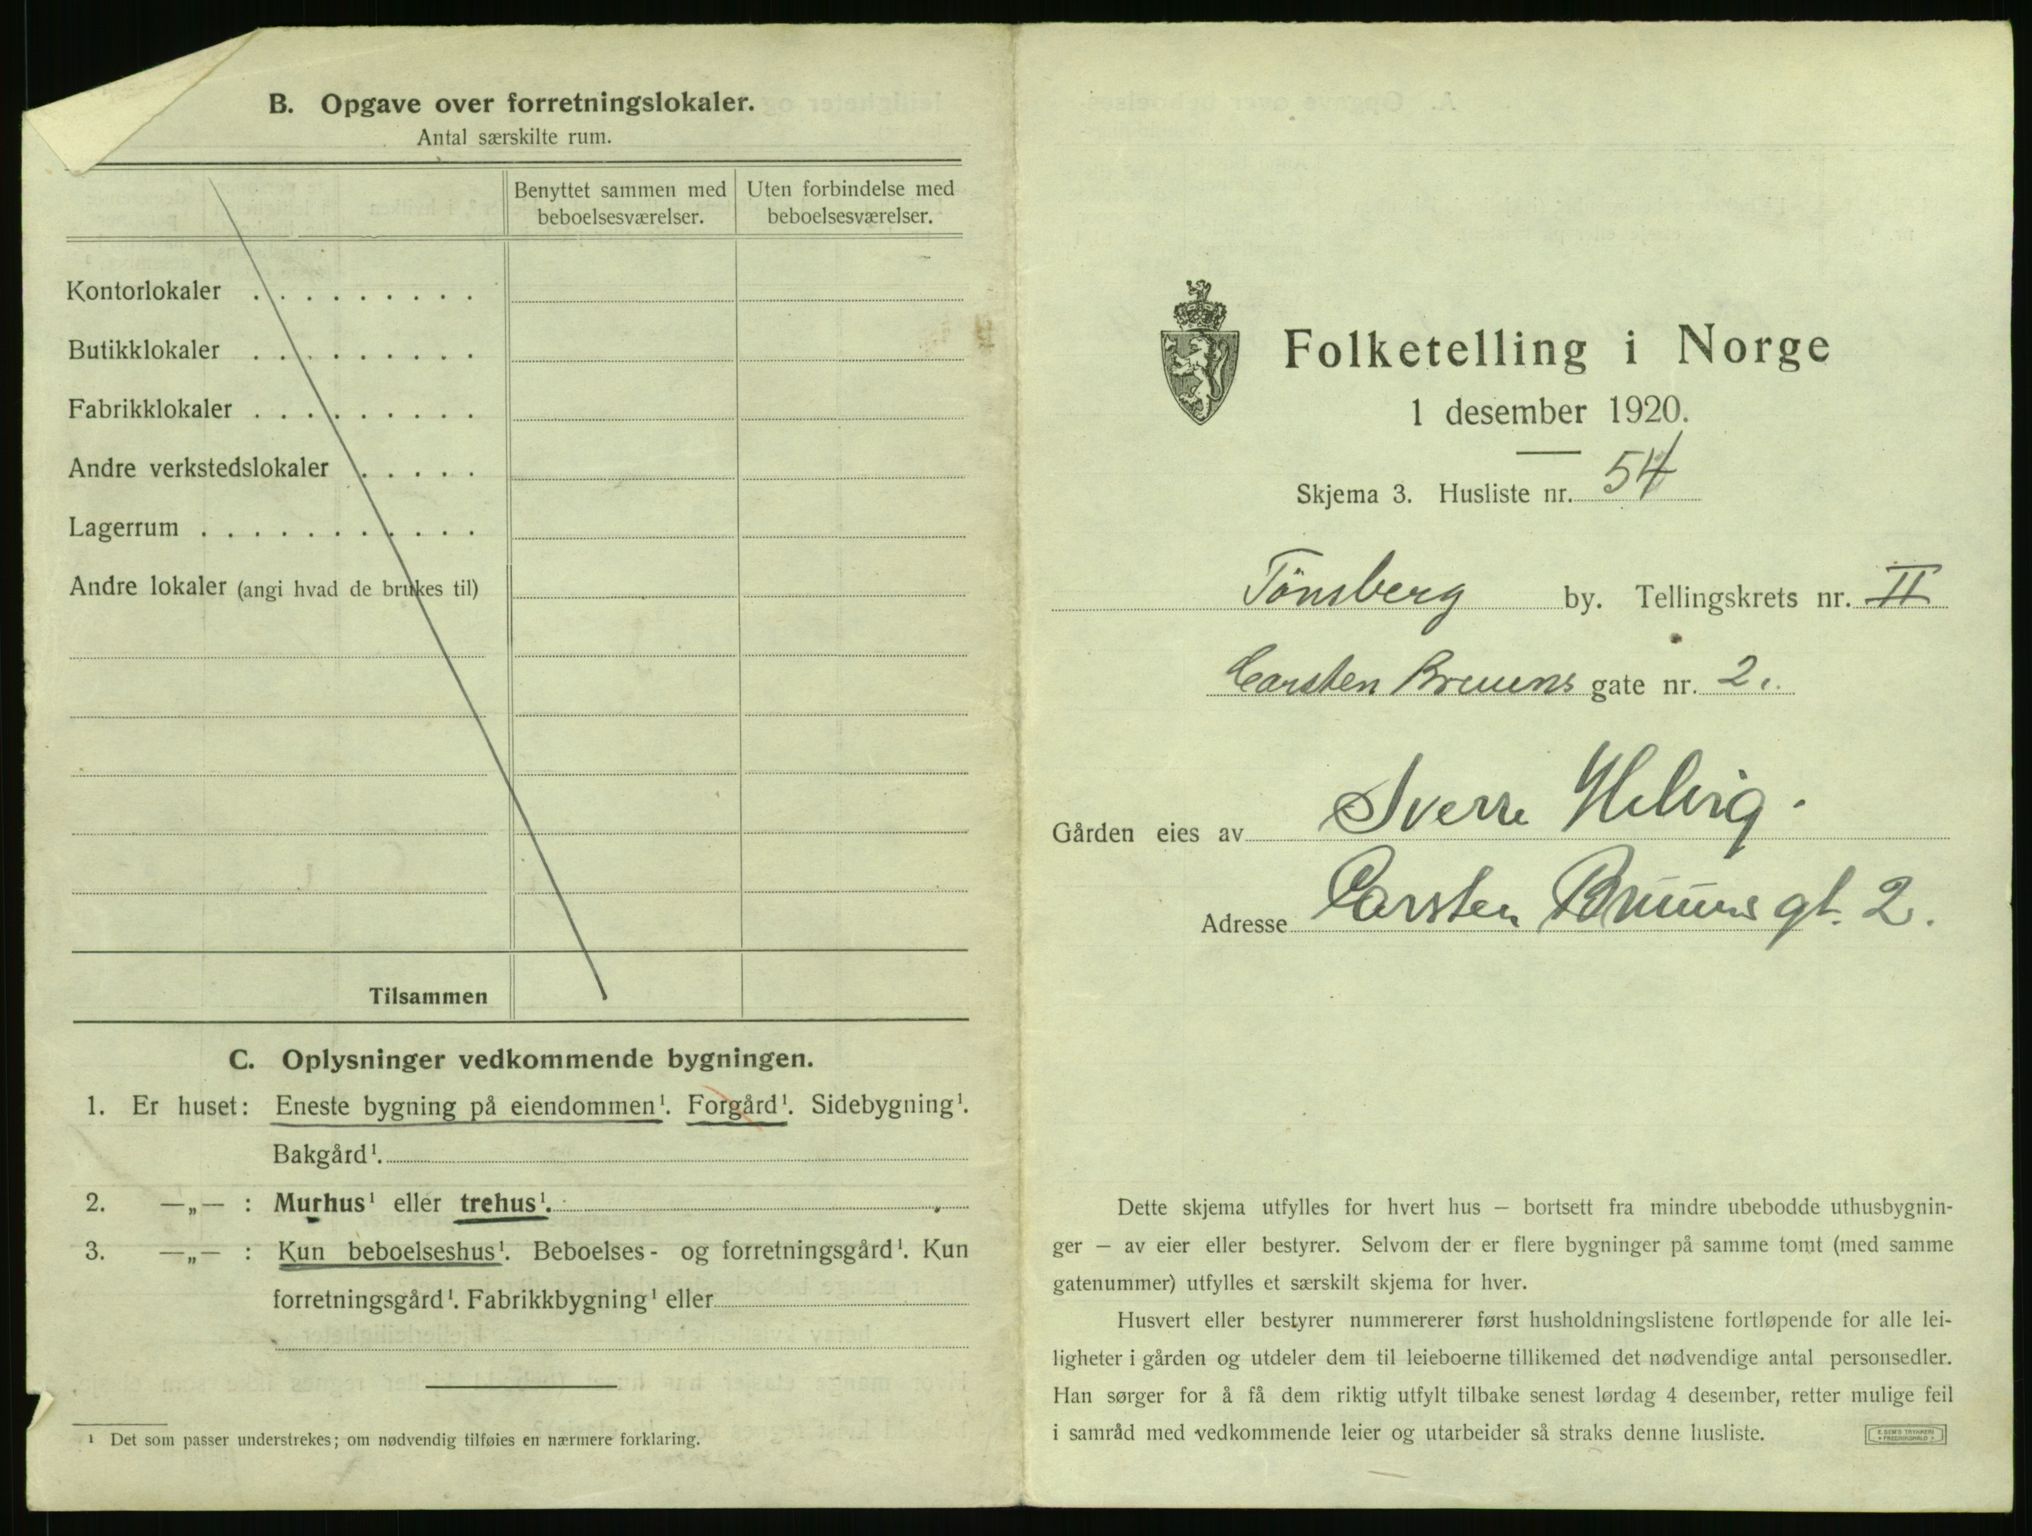 B. Opgave over forretningslokaler.
Antal særskilte rum.
Benyttet sammen med beboelsesværelser.
Uten forbindelse med beboelsesværelser.
Kontorlokaler . . . . . . . . .
Butikklokaler . . . . . . . . .
Fabrikklokaler . . . . . . . . .
Andre verkstedslokaler . . . . .
Lagerrum . . . . . . . . . . .
Andre lokaler (angi hvad de brukes til)
Tilsammen
C. Oplysninger vedkommende bygningen.
1. Er huset: Eneste bygning på eiendommen¹. Forgård¹. Sidebygning¹.
Bakgård¹.
2. —„— : Murhus¹ eller trehus¹.
3. —„— : Kun beboelseshus¹. Beboelses- og forretningsgård¹. Kun
forretningsgård¹. Fabrikkbygning¹ eller
¹ Det som passer understrekes; om nødvendig tilføies en nærmere forklaring.
Folketelling i Norge
1 desember 1920.
Skjema 3. Husliste nr. 54
Tönsberg by. Tellingskrets nr. II
Carsten Bruuns gate nr. 2.
Gården eies av Sverre Helvig.
Adresse Carsten Bruuns gt. 2.
Dette skjema utfylles for hvert hus — bortsett fra mindre ubebodde uthusbygnin-
ger — av eier eller bestyrer. Selvom der er flere bygninger på samme tomt (med samme
gatenummer) utfylles et særskilt skjema for hver.
Husvert eller bestyrer nummererer først husholdningslistene fortløpende for alle lei-
ligheter i gården og utdeler dem til leieboerne tillikemed det nødvendige antal personsedler.
Han sørger for å få dem riktig utfylt tilbake senest lørdag 4 desember, retter mulige feil
i samråd med vedkommende leier og utarbeider så straks denne husliste.
E. SEM'S TRYKKERI
FREDRIKSHALD